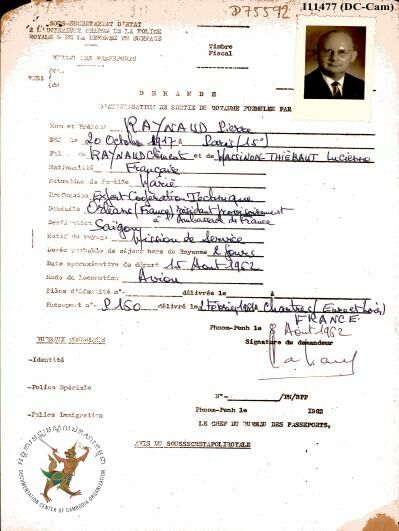 D75592
I11477 (DC-Cam)
SOUS-SECRETARIAT D'ETAT
A L'INTERIEUR CHARGE DE LA POLICE
ROYALE & DE LA DEFENSE EN SURFACE
Timbre
Fiscal
BUREAU DES PASSEPORTS
VISA
DEMANDE
D'AUTORISATION DE SORTIE DU ROYAUME FORMULEE PAR
Nom et Prénom RAYNAUD Pierre
Né le 20 Octobre 1917 à Paris (15°)
Fils de RAYNAUD Clément et de THIEBAUT Lucienne
Nationalité Française
Situation de famille Marié
Profession Expert Coopération Technique
Domicile Orléans (France) résidant provisoirement
à Ambassade de France
Destination Saïgon
Motif du voyage Mission de Service
Durée probable de séjour hors du Royaume 2 jours
Date approximative de départ 15 Aout 1962
Mode de Locomotion Avion
Pièce d'identité n° délivrée le à
Passeport n° 2160 délivré le
FRANCE
Phnom-Penh le 8 Aout 1962
Signature du demandeur
BUREAUX CONSULTES
-Identité
-Police Spéciale
N° /PN/BPP
-Police Immigration
Phnom-Penh le 1962
LE CHEF DU BUREAU DES PASSEPORTS,
AVIS DU SOUSSECRETAPOLIROYALE
DOCUMENTATION CENTER OF CAMBODIA ORGANIZATION